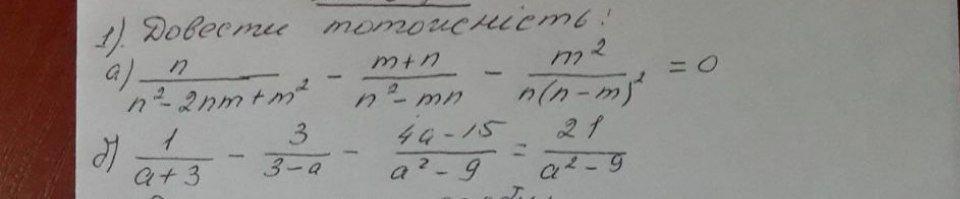 1). Довести тотожність!
а) n/(n²-2nm+m²) - (m+n)/(n²-mn) - m²/(n(n-m)²) = 0
б) 1/(a+3) - 3/(3-a) - (4a-15)/(a²-9) = 21/(a²-9)